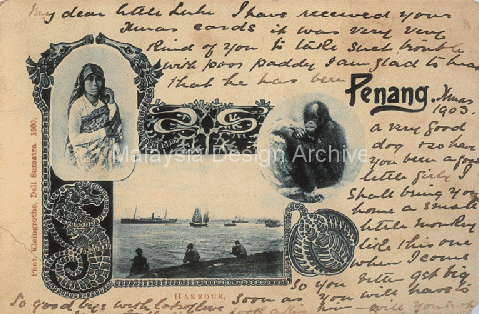 My dear little Lulu I have received your
Xmas cards it was very very
kind of you to take such trouble
with poor paddy I am glad to hear
that he has been
Penang.
Xmas
1903.
a very good
dog & so have
you been a good
little girl, I
shall bring you
home a small
little monkey
like this one
when I come
so you better get big
soon as you will have to
look after him
So good bye with
Malaysia Design Archive
Phot. Kleingrothe, Deli Sumatra. 1900.
HARBOUR.